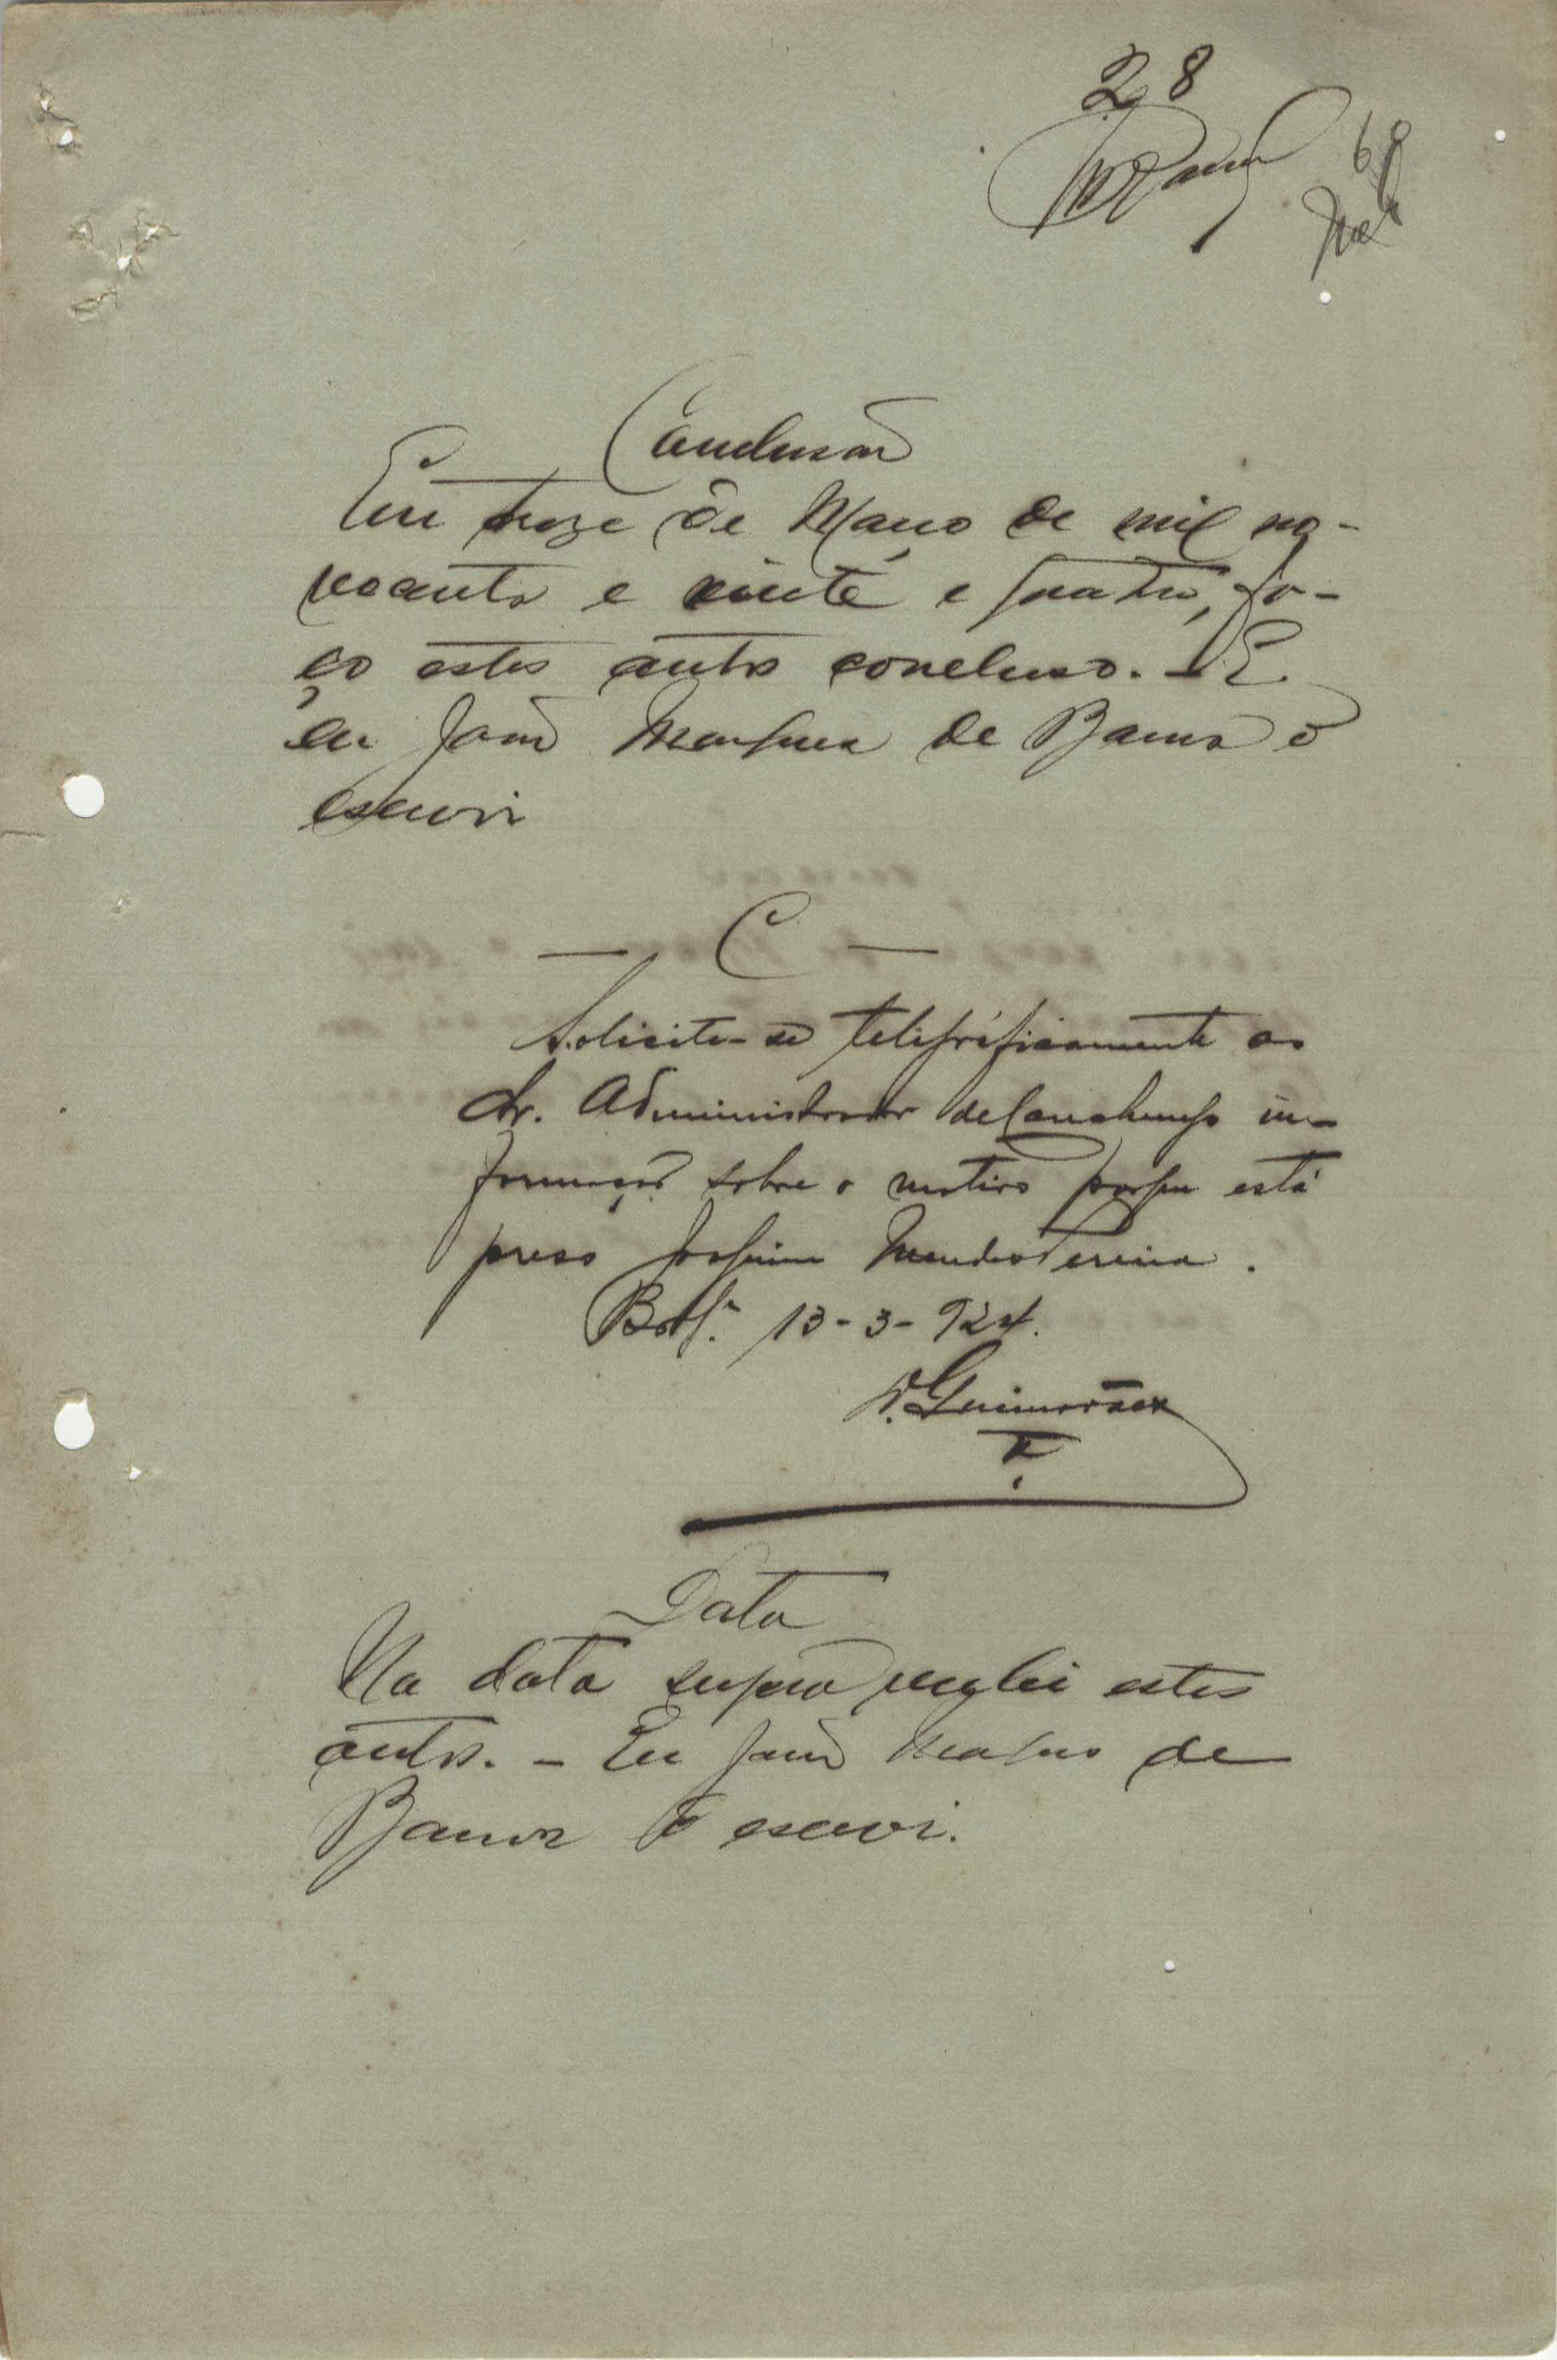 28
68
Conclusão
Em treze de Março de mil no-
vecentos e vinte e quatro, fa-
ço estes autos conclusos. - E
eu João Marques de Barros o
escrevi
- C -
Solicite-se telegráficamente ao
sr. Administrador de Canchungo in-
formação sobre o motivo porque está
preso Joaquim Mendes Pereira.
13-3-924.
Guimarães
Data
Na data supra recebi estes
autos. - Eu João Marques de
Barros o escrevi.